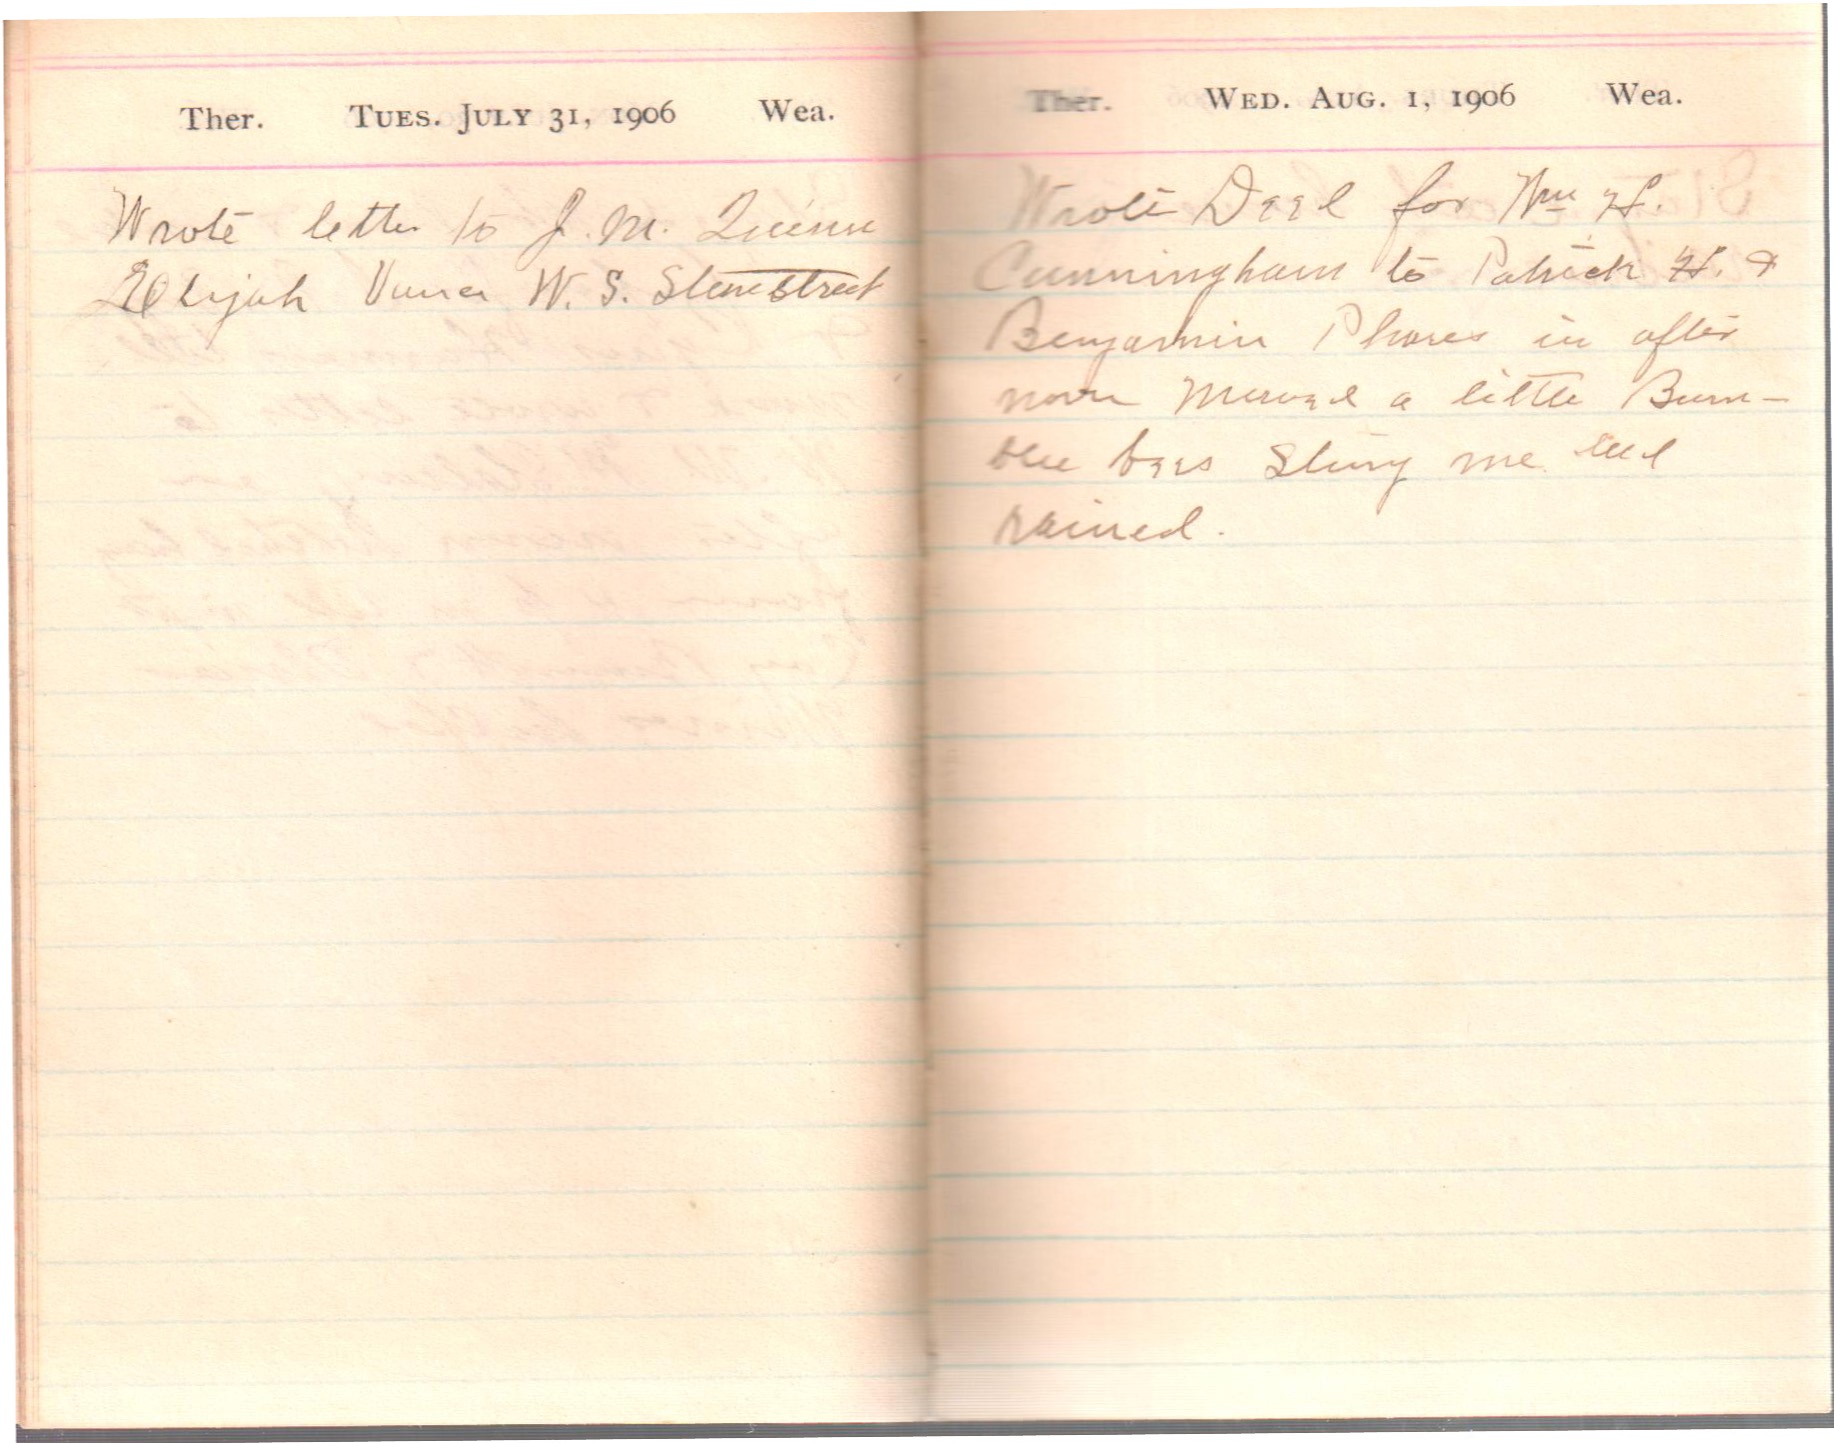 Ther. TUES. JULY 31, 1906 Wea.
Wrote letter to J. M. Quinn
Elijah W. S. Stonestreet
Ther. WED. AUG. 1, 1906 Wea.
Wrote Deed for Wm H.
Cunningham to Patrick H. &
Benjamin Phares in after
noon Mowed a little Bum-
ble bees Stung me and
rained.